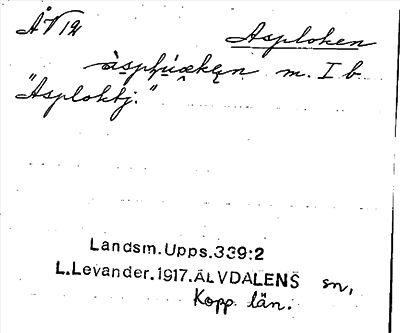 ÅV 12 Asploken
m. I b
"Asploktj."
Landsm. Upps. 339:2
L. Levander. 1917. ÄLVDALENS sn,
Kopp. län.